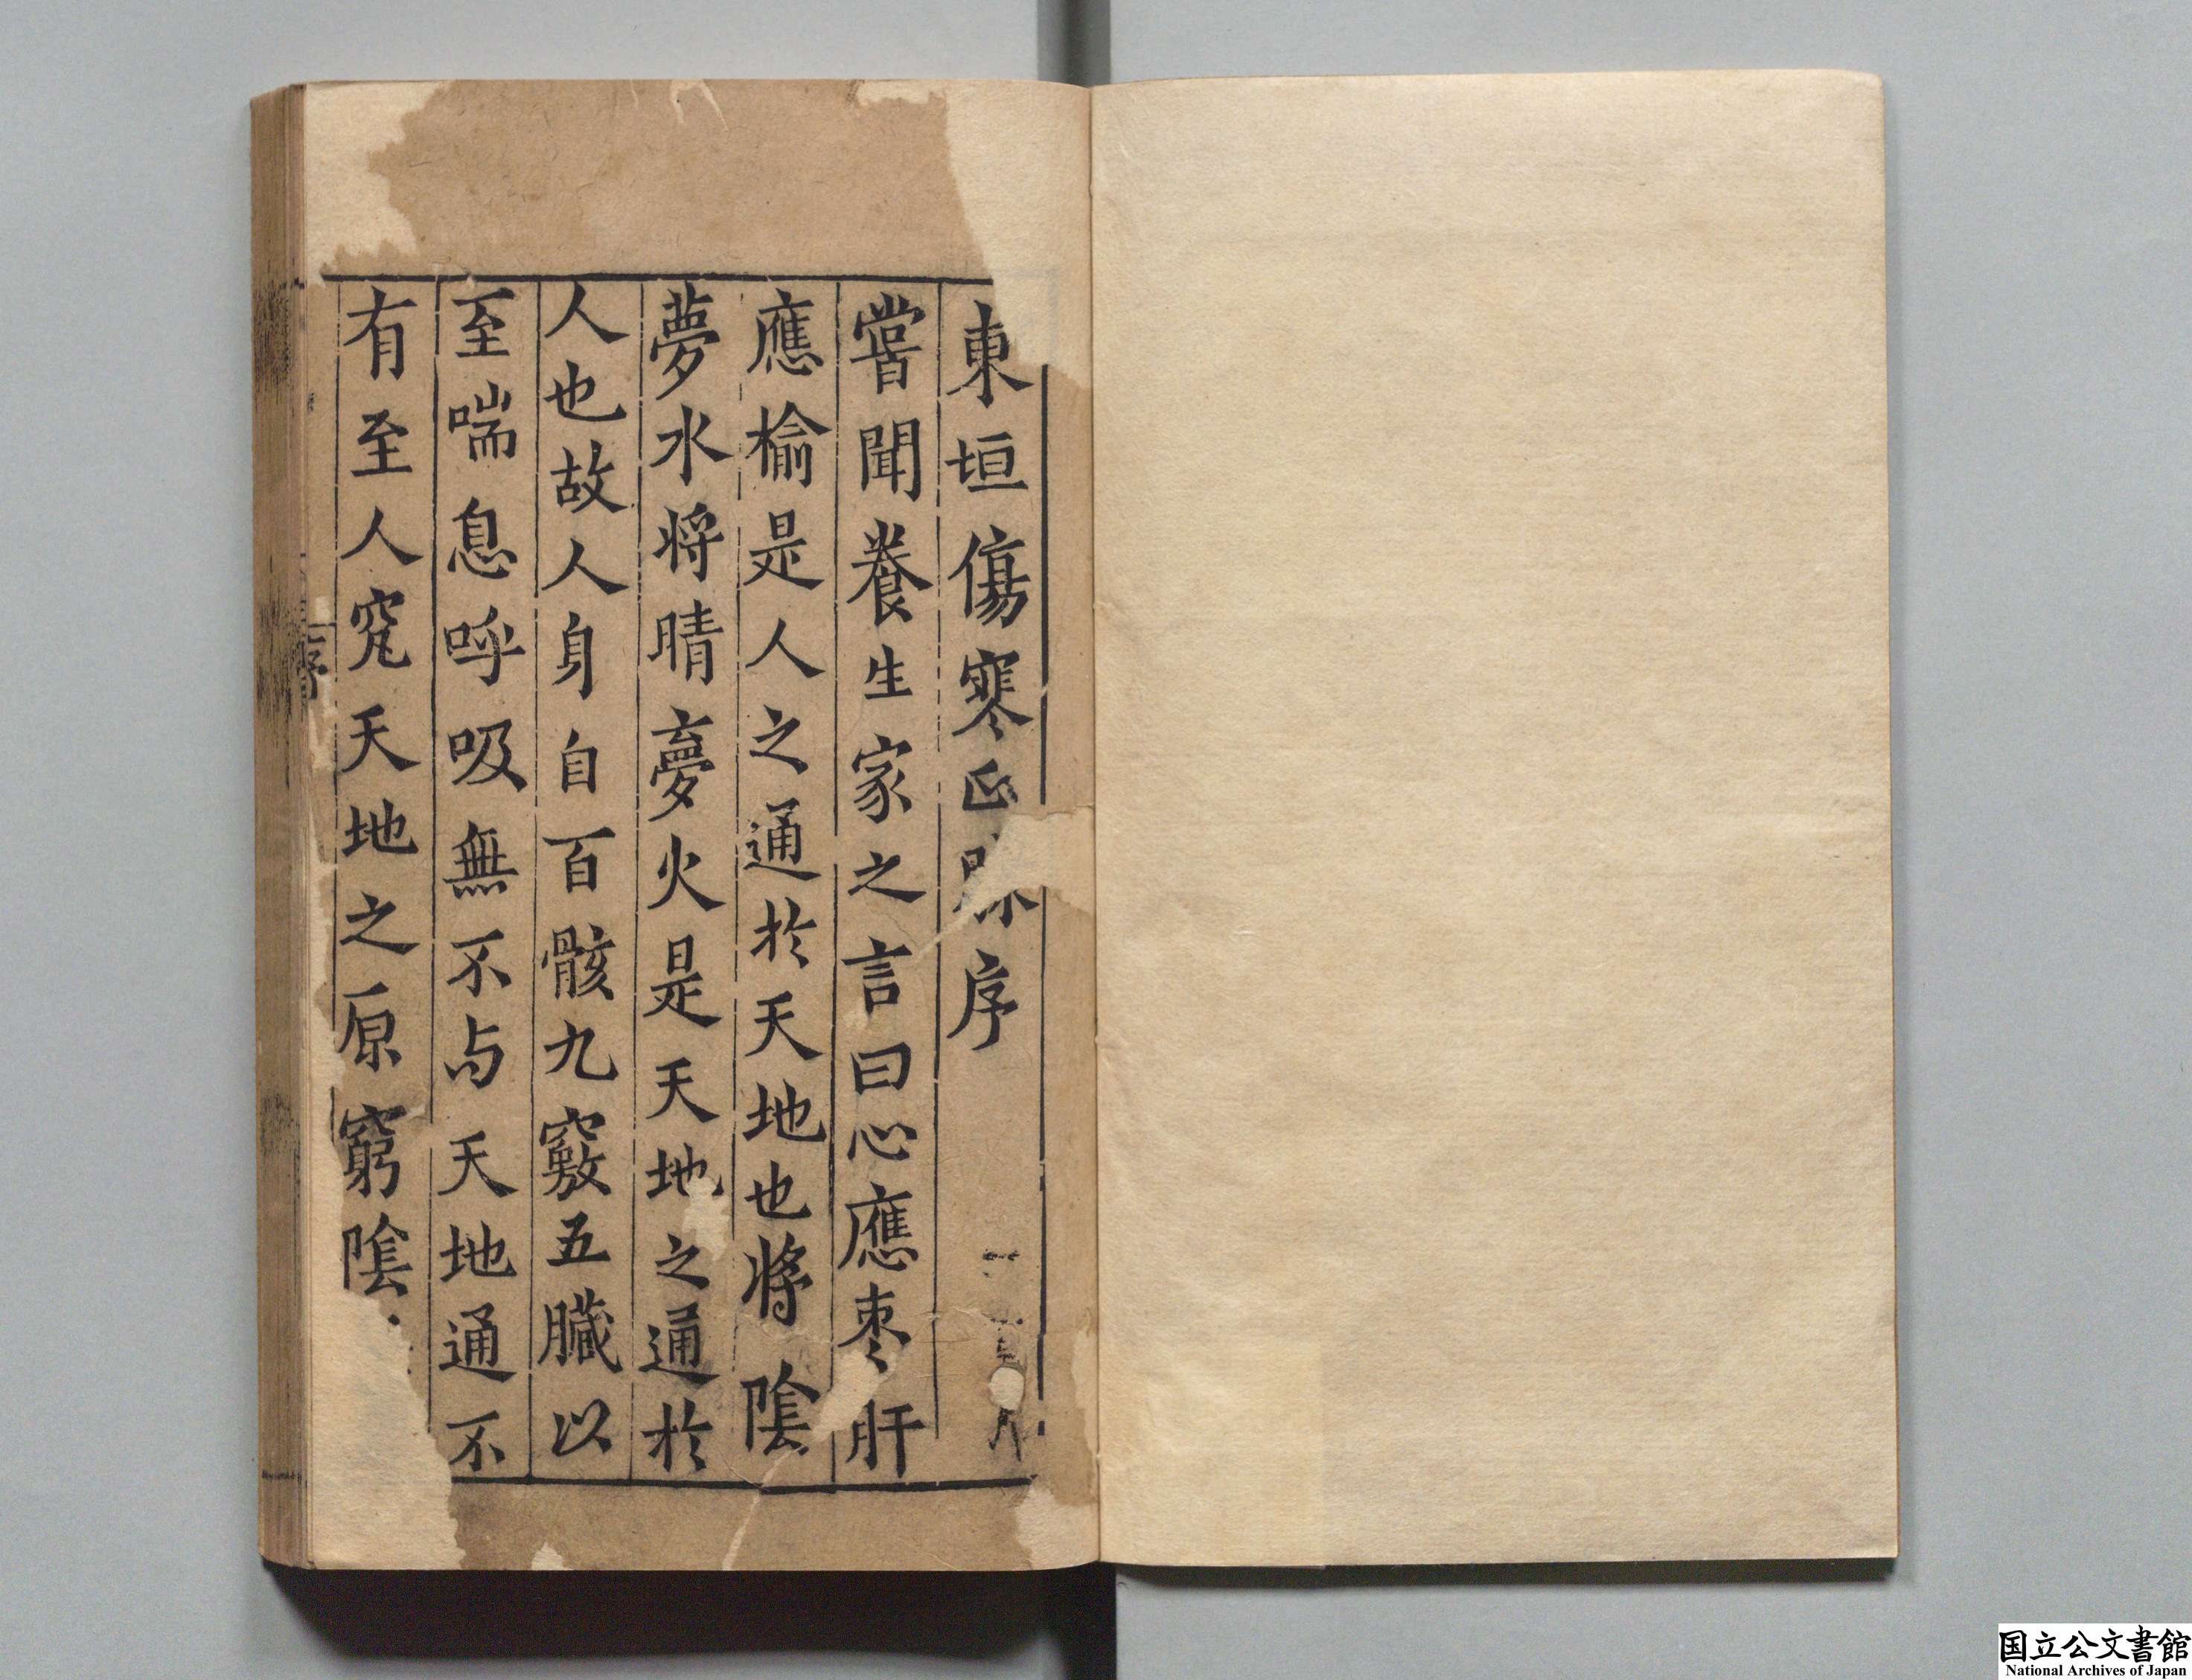 東垣傷寒正脉序
嘗聞養生家之言曰心應棗肝
應榆是人之通於天地也將陰
夢水将晴夢火是天地之通於
人也故人身自百骸九竅五臟以
至喘息呼吸無不与天地通不
有至人究天地之原窮陰
序
国立公文書館
National Archives of Japan